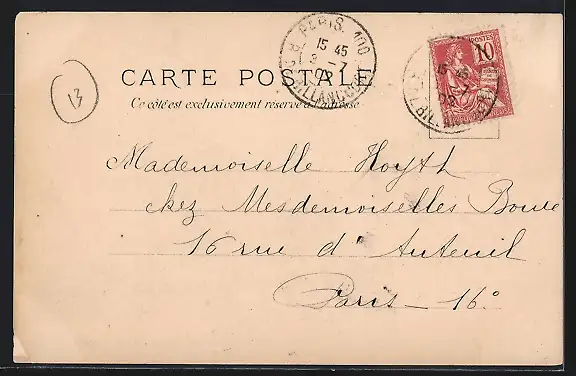 PARIS 100
15 45
3 - 7
02
R. BILLANCOURT
POSTES
10
15 45
CARTE POSTALE
Ce côté est exclusivement réservé à l'adresse
13
Mademoiselle Hoyth
chez Mesdemoiselles Boue
16 rue d'Auteuil
Paris - 16°